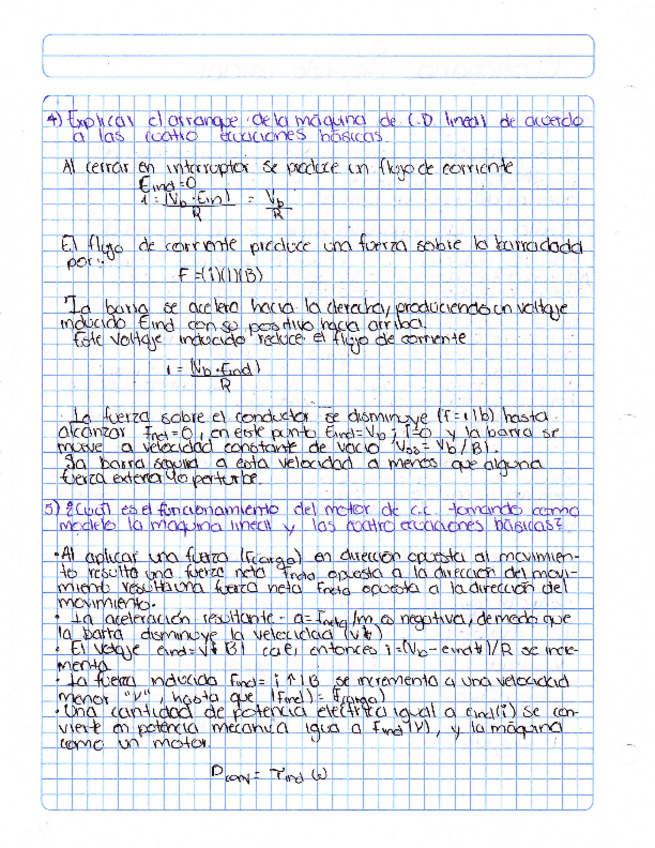 4) Explicar el arranque de la máquina de C.D lineal de acuerdo
a las cuatro ecuaciones básicas.
Al cerrar en interruptor se produce un flujo de corriente
Eind=0
i = (Vb - Ein) / R = Vb / R
El flujo de corriente produce una fuerza sobre la barra dada
por:
F=(i)(l)(B)
La barra se acelera hacia la derecha, produciendo un voltaje
inducido Eind con su positivo hacia arriba.
Este voltaje inducido reduce el flujo de corriente
i = (Vb - Eind) / R
La fuerza sobre el conductor se disminuye (F=ilb) hasta
alcanzar Fnet=0, en este punto Eind=Vb, i=0 y la barra se
mueve a velocidad constante de vacío Vss= Vb/Bl.
La barra seguirá a esta velocidad a menos que alguna
fuerza externa lo perturbe.
5) ¿Cuál es el funcionamiento del motor de c.c. tomando como
modelo la máquina lineal y las cuatro ecuaciones básicas?
•Al aplicar una fuerza (Fcarga) en dirección opuesta al movimien-
to resulta una fuerza neta Fneta opuesta a la dirección del movi-
miento resulta una fuerza neta Fneta opuesta a la dirección del
movimiento.
• La aceleración resultante - a=Fneta/m es negativa, de modo que
la barra disminuye la velocidad (v↓)
• El voltaje eind=v↓Bl cae, entonces i=(Vb-eind↓)/R se incre-
menta
• La fuerza inducida Find= i↑lB se incrementa a una velocidad
menor "V", hasta que (Find)=(Fcarga)
• Una cantidad de potencia eléctrica igual a eind(i) se con-
vierte en potencia mecánica igua a Find(V), y la máquina
como un motor.
Pconv= Tind ω